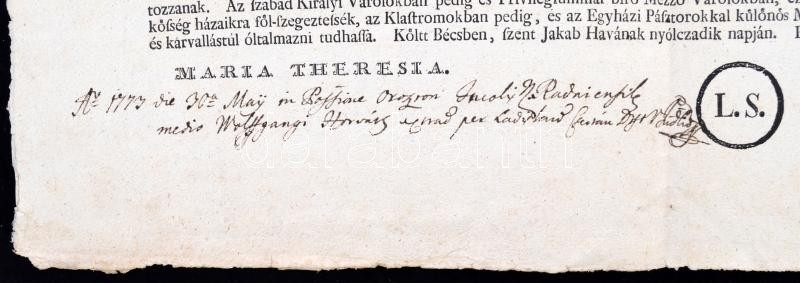 tozzanak. Az szabad Királyi Városokban pedig és Privilegiummal bíró Mezzö Városokban,
kösség házaikra föl-szegeztessék, az Klastromokban pedig, es az Egyházi Pásztorokkal különös
és kárvallástúl óltalmazni tudhassa. Költt Bécsben, szent Jakab Havának nyólczadik napján.
MARIA THERESIA.
Aº 1773 die 30a Maÿ in Possione Oroszon Incolis N. Radaiensis
medio Wolffgangi Horváth extrad per Ladislaum
L. S.